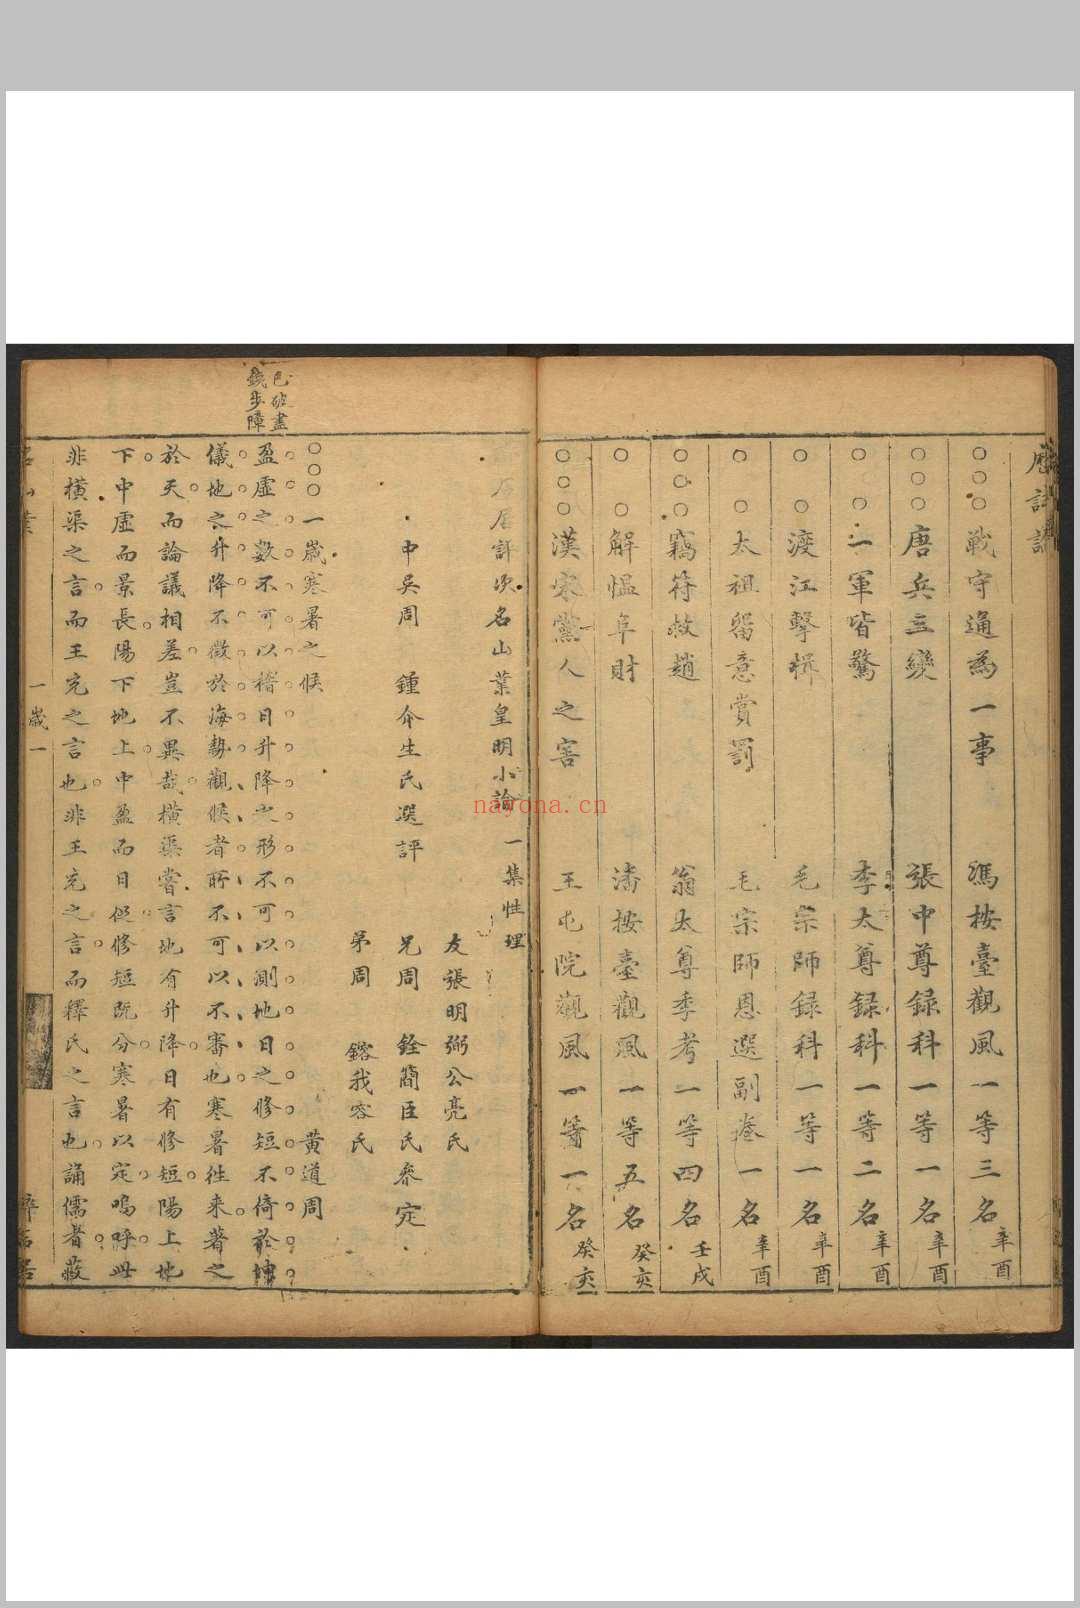 應試論
○○○戰守通為一事 馮按臺觀風一等三名辛酉
○○○唐兵三變 張中尊録科一等一名辛酉
○ ○一軍皆驚 李太尊録科一等二名辛酉
○ ○渡江擊楫 毛宗師録科一等一名辛酉
○ ○太祖留意賞罰 毛宗師恩選副卷一名辛酉
○○○竊符救趙 翁太尊季考一等四名壬戌
○ ○解慍阜財 潘按臺觀風一等五名癸亥
○○○漢宋黨人之害 王屯院觀風一等一名癸亥
居評次名山業皇明小論 一集性理
友張明弼公亮氏
中吳周 鍾介生氏選評 兄周 銓簡臣氏參定
弟周 鎔我容氏
○○○一歲寒暑之候 黃道周
色破畫
錢步障
盈虛之數不可以稽日升降之形不可以測地日之修短不倚於坤
儀地之升降不徵於海勢觀候者所不可以不審也寒暑往來著之
於天而論議相差豈不異哉橫渠嘗言地有升降日有修短陽上地
下中虛而景長陽下地上中盈而日促修短既分寒暑以定嗚呼此
非橫渠之言而王充之言也非王充之言而釋氏之言也誦儒者蔽
名山業 一歲 一
nayona.cn